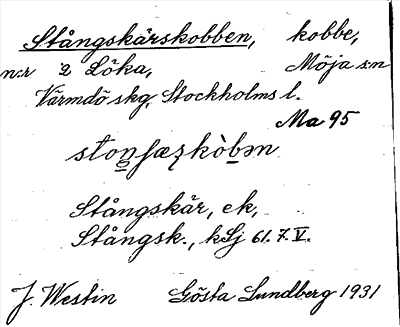 Stångskärskobben, kobbe,
n:r 2 Löka, Möja s:n
Värmdö skg, Stockholms l.
Ma 95
stoŋ̲ʃæʐkòb̲ən
Stångskär, ek,
Stångsk., kSj 61.7.V.
J. Westin Gösta Lundberg 1931